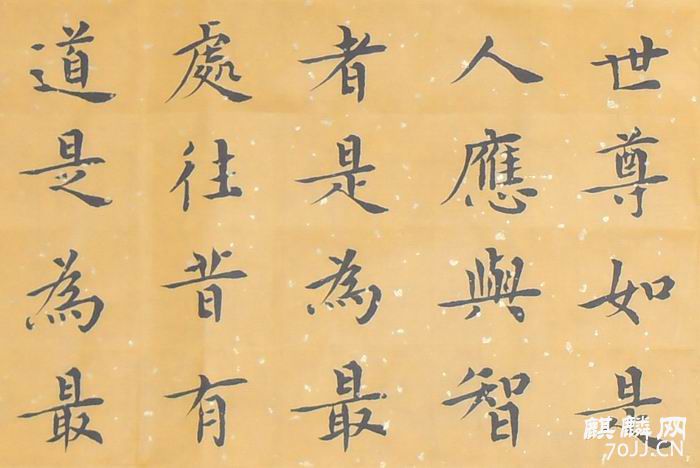 世尊如是
人應與智
者是為最
處往昔有
道是為最
麒麟网
70JJ.CN